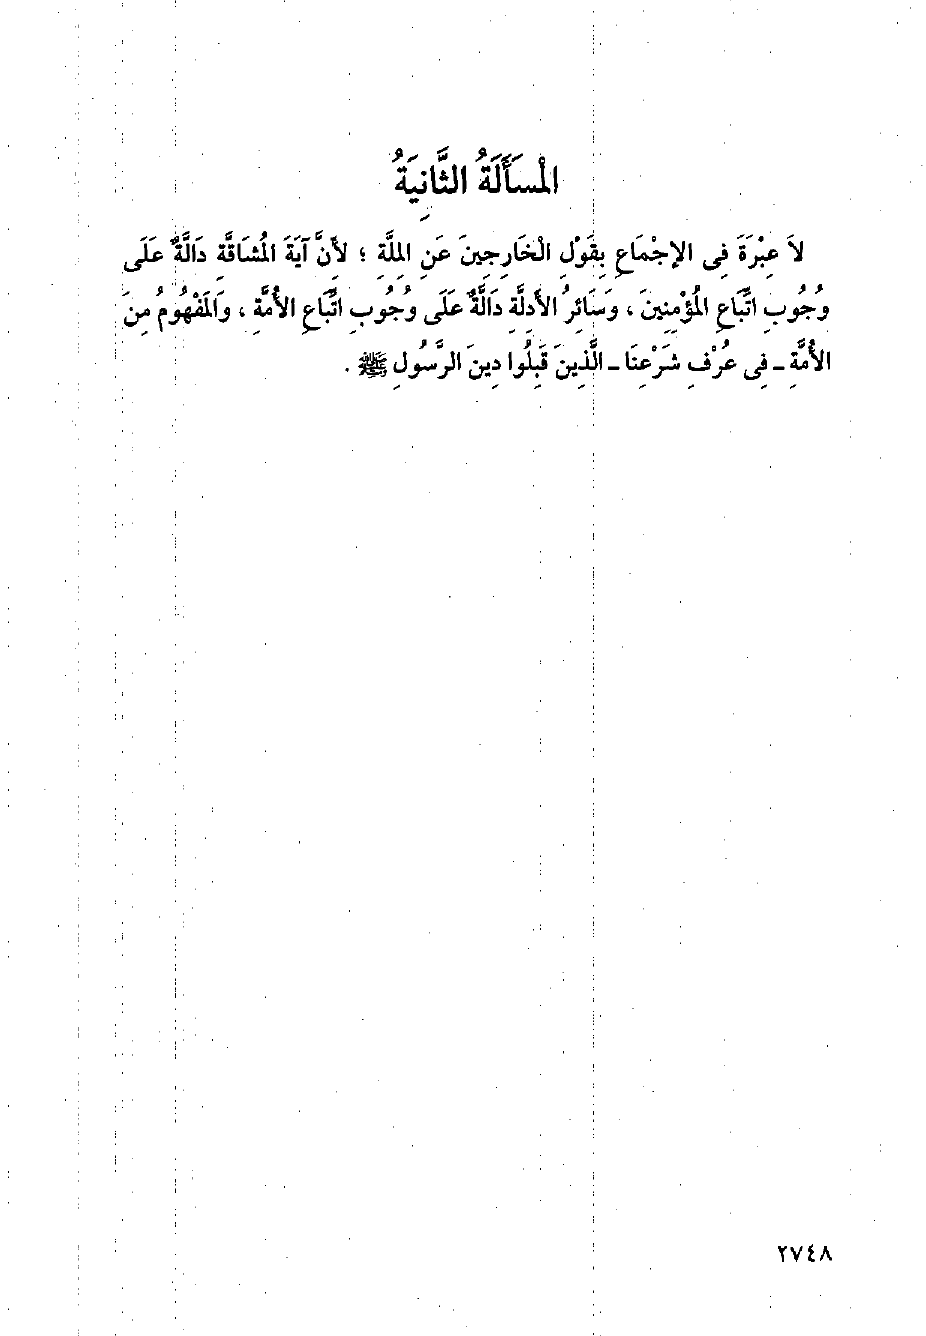 الْمسأَلَةُ الثَّانِيَةُ
لاَ عِبْرَةَ فِى الإجْمَاعِ بِقَوْلِ الْخَارِجِينَ عَنِ المِلَّةِ ؛ لأنَّ آيَةَ المُشَاقَّةِ دَالَّةٌ عَلَى
وُجُوبِ اتِّبَاعِ المُؤْمِنِينَ ، وَسَائِرُ الأَدِلَّةِ دَالَّةٌ عَلَى وُجُوبِ اتِّبَاعِ الأُمَّةِ ، وَالمَفْهُومُ مِنَ
الأُمَّةِ ـ فِى عُرْفِ شَرْعِنَا ـ الَّذِينَ قَبِلُوا دِينَ الرَّسُولِ ﷺ .
٢٧٤٨